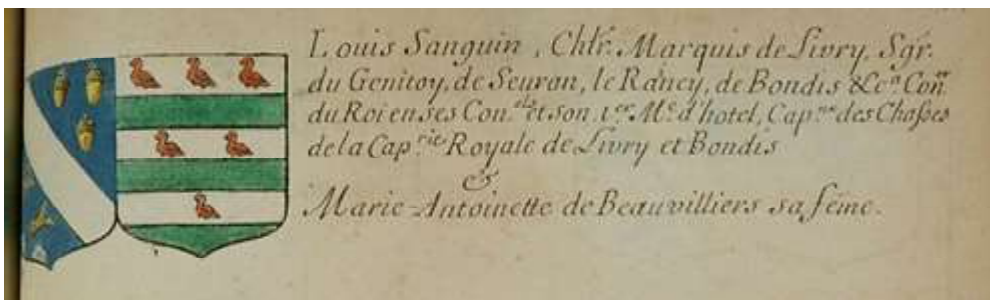 Louis Sanguin, Chlr. Marquis de Livry, Sgr.
du Genitoy, de Seuran, le Raincy, de Bondis &c.ª Con.er
du Roi en ses Con.els et son 1.er M.e d'hotel, Cap.ne des Chasses
de la Cap.rie Royale de Livry et Bondis
&
Marie-Antoinette de Beauvilliers sa fẽme.